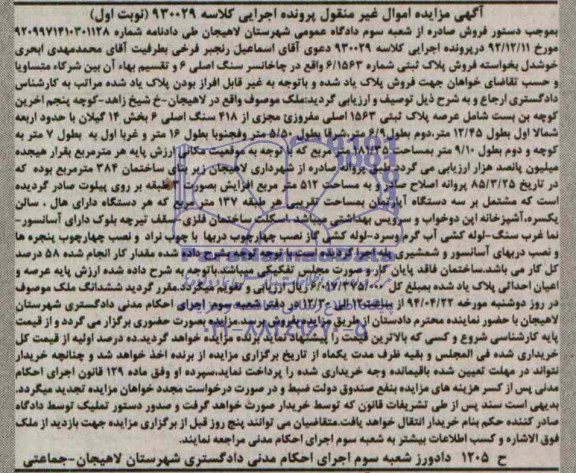 آگهی مزایده اموال غیر منقول پرونده اجرایی کلاسه ۹۳۰۰۲۹ (نوبت اول)
بموجب دستور فروش صادره از شعبه سوم دادگاه عمومی شهرستان لاهیجان طی دادنامه شماره ۹۲۰۹۹۷۱۴۱۰۳۰۱۱۲۸
مورخ ۹۲/۱۲/۱۱ درپرونده اجرایی کلاسه ۹۳۰۰۲۹ دعوی آقای اسماعیل رنجبر فرخی بطرفیت آقای محمدمهدی ابحری
خوشدل بخواسته فروش پلاک ثبتی شماره ۶/۱۵۶۳ واقع در چاخانسر سنگ اصلی ۶ و تقسیم بهاء آن بین شرکاء متساویا
و حسب تقاضای خواهان جهت فروش پلاک یاد شده و باتوجه به غیر قابل افراز بودن پلاک یاد شده مراتب به کارشناس
دادگستری ارجاع و به شرح ذیل توصیف و ارزیابی گردید:ملک موصوف واقع در لاهیجان-خ شیخ زاهد-کوچه پنجم آخرین
کوچه بن بست شامل عرصه پلاک ثبتی ۱۵۶۳ اصلی مفروزی مجزی از ۴۱۸ سنگ اصلی ۶ بخش ۱۴ گیلان با حدود اربعه
شمالا اول بطول ۱۲/۴۵ متر،دوم بطول ۶/۹ متر،شرقا بطول ۵/۵۰ متر وفجنوبا بطول ۱۶ متر و غربا اول به بطول ۷ متر به
کوچه و دوم بطول ۹/۱۰ متر بمساحت متر مربع که با توجه به موقعیت مکانی ارزش پایه هر مترمربع بقرار هیجده
میلیون پانصد هزار ارزیابی می گردد.طبق پروانه صادره از شهرداری لاهیجان زیر بنای ساختمان ۳۸۴ مترمربع بوده که
در تاریخ ۸۵/۳/۲۵ پروانه اصلاح صادر و به مساحت ۵۱۲ متر مربع افزایش بصورت طبقه بر روی پیلوت صادر گردیده
است که مشتمل بر سه دستگاه آپارتمان بمساحت تقریبی هر طبقه ۱۳۷ متر مربع که هر دستگاه دارای هال ، سالن
یکسره،آشپزخانه اپن دوخواب و سرویس بهداشتی میباشد.اسکلت ساختمان فلزی-سقف تیرچه بلوک دارای آسانسور-
نما غرب سنگ-لوله کشی آب گرم وسرد-لوله کشی گاز نصب چهارچوب دربها با چوب نراد و نصب چهارچوب پنجره ها
و نصب دربهای آسانسور و شمشیری پله اجرا گردیده است با توجه توجه بشرح داده شده مقدار کار انجام شده ۵۸ درصد
کل کار می باشد.ساختمان فاقد پایان کار و صورت مجلس تفکیکی میباشد.باتوجه به شرح داده شده ارزش پایه عرصه و
اعیان احداثی پلاک یاد شده بمبلغ کل ریال ارزیابی و تقویم میگردد.مقرر گردید ششدانگ ملک موصوف
در روز دوشنبه مورخه ۹۴/۰۴/۲۲ از ساعت۱۲ الی ۱۲/۳۰ در دفتر شعبه سوم اجرای احکام مدنی دادگستری شهرستان
لاهیجان با حضور نماینده محترم دادستان از طریق مزایده بفروش برسد.مزایده بصورت حضوری برگزار می گردد و از قیمت
پایه کارشناسی شروع و کسی که بالاترین قیمت را پیشنهاد نماید برنده مزایده خواهد گردید.ده درصد اولیه از قیمت کل
خریداری شده فی المجلس و بقیه ظرف مدت یکماه از تاریخ برگزاری مزایده از برنده اخذ خواهد شد و چنانچه خریدار
نتواند در مهلت تعیین شده باقیمانده وجه خریداری شده را پرداخت نماید،سپرده او وفق ماده ۱۲۹ قانون اجرای احکام
مدنی پس از کسر هزینه های مزایده بنفع صندوق دولت ضبط و در صورت درخواست مجدد خواهان مزایده تجدید میگردد.
بدیهی است سند پس از طی تشریفات قانون که توسط خریدار صورت خواهد گرفت و صدور دستور تملیک توسط دادگاه
صادر کننده حکم بنام خریدار انتقال خواهد یافت.متقاضیان می توانند پنج روز قبل از برگزاری مزایده جهت بازدید از ملک
فوق الاشاره و کسب اطلاعات بیشتر به شعبه سوم اجرای احکام مدنی مراجعه نمایند.
ح ۱۲۰۵ دادورز شعبه سوم اجرای احکام مدنی دادگستری شهرستان لاهیجان-جماعتی